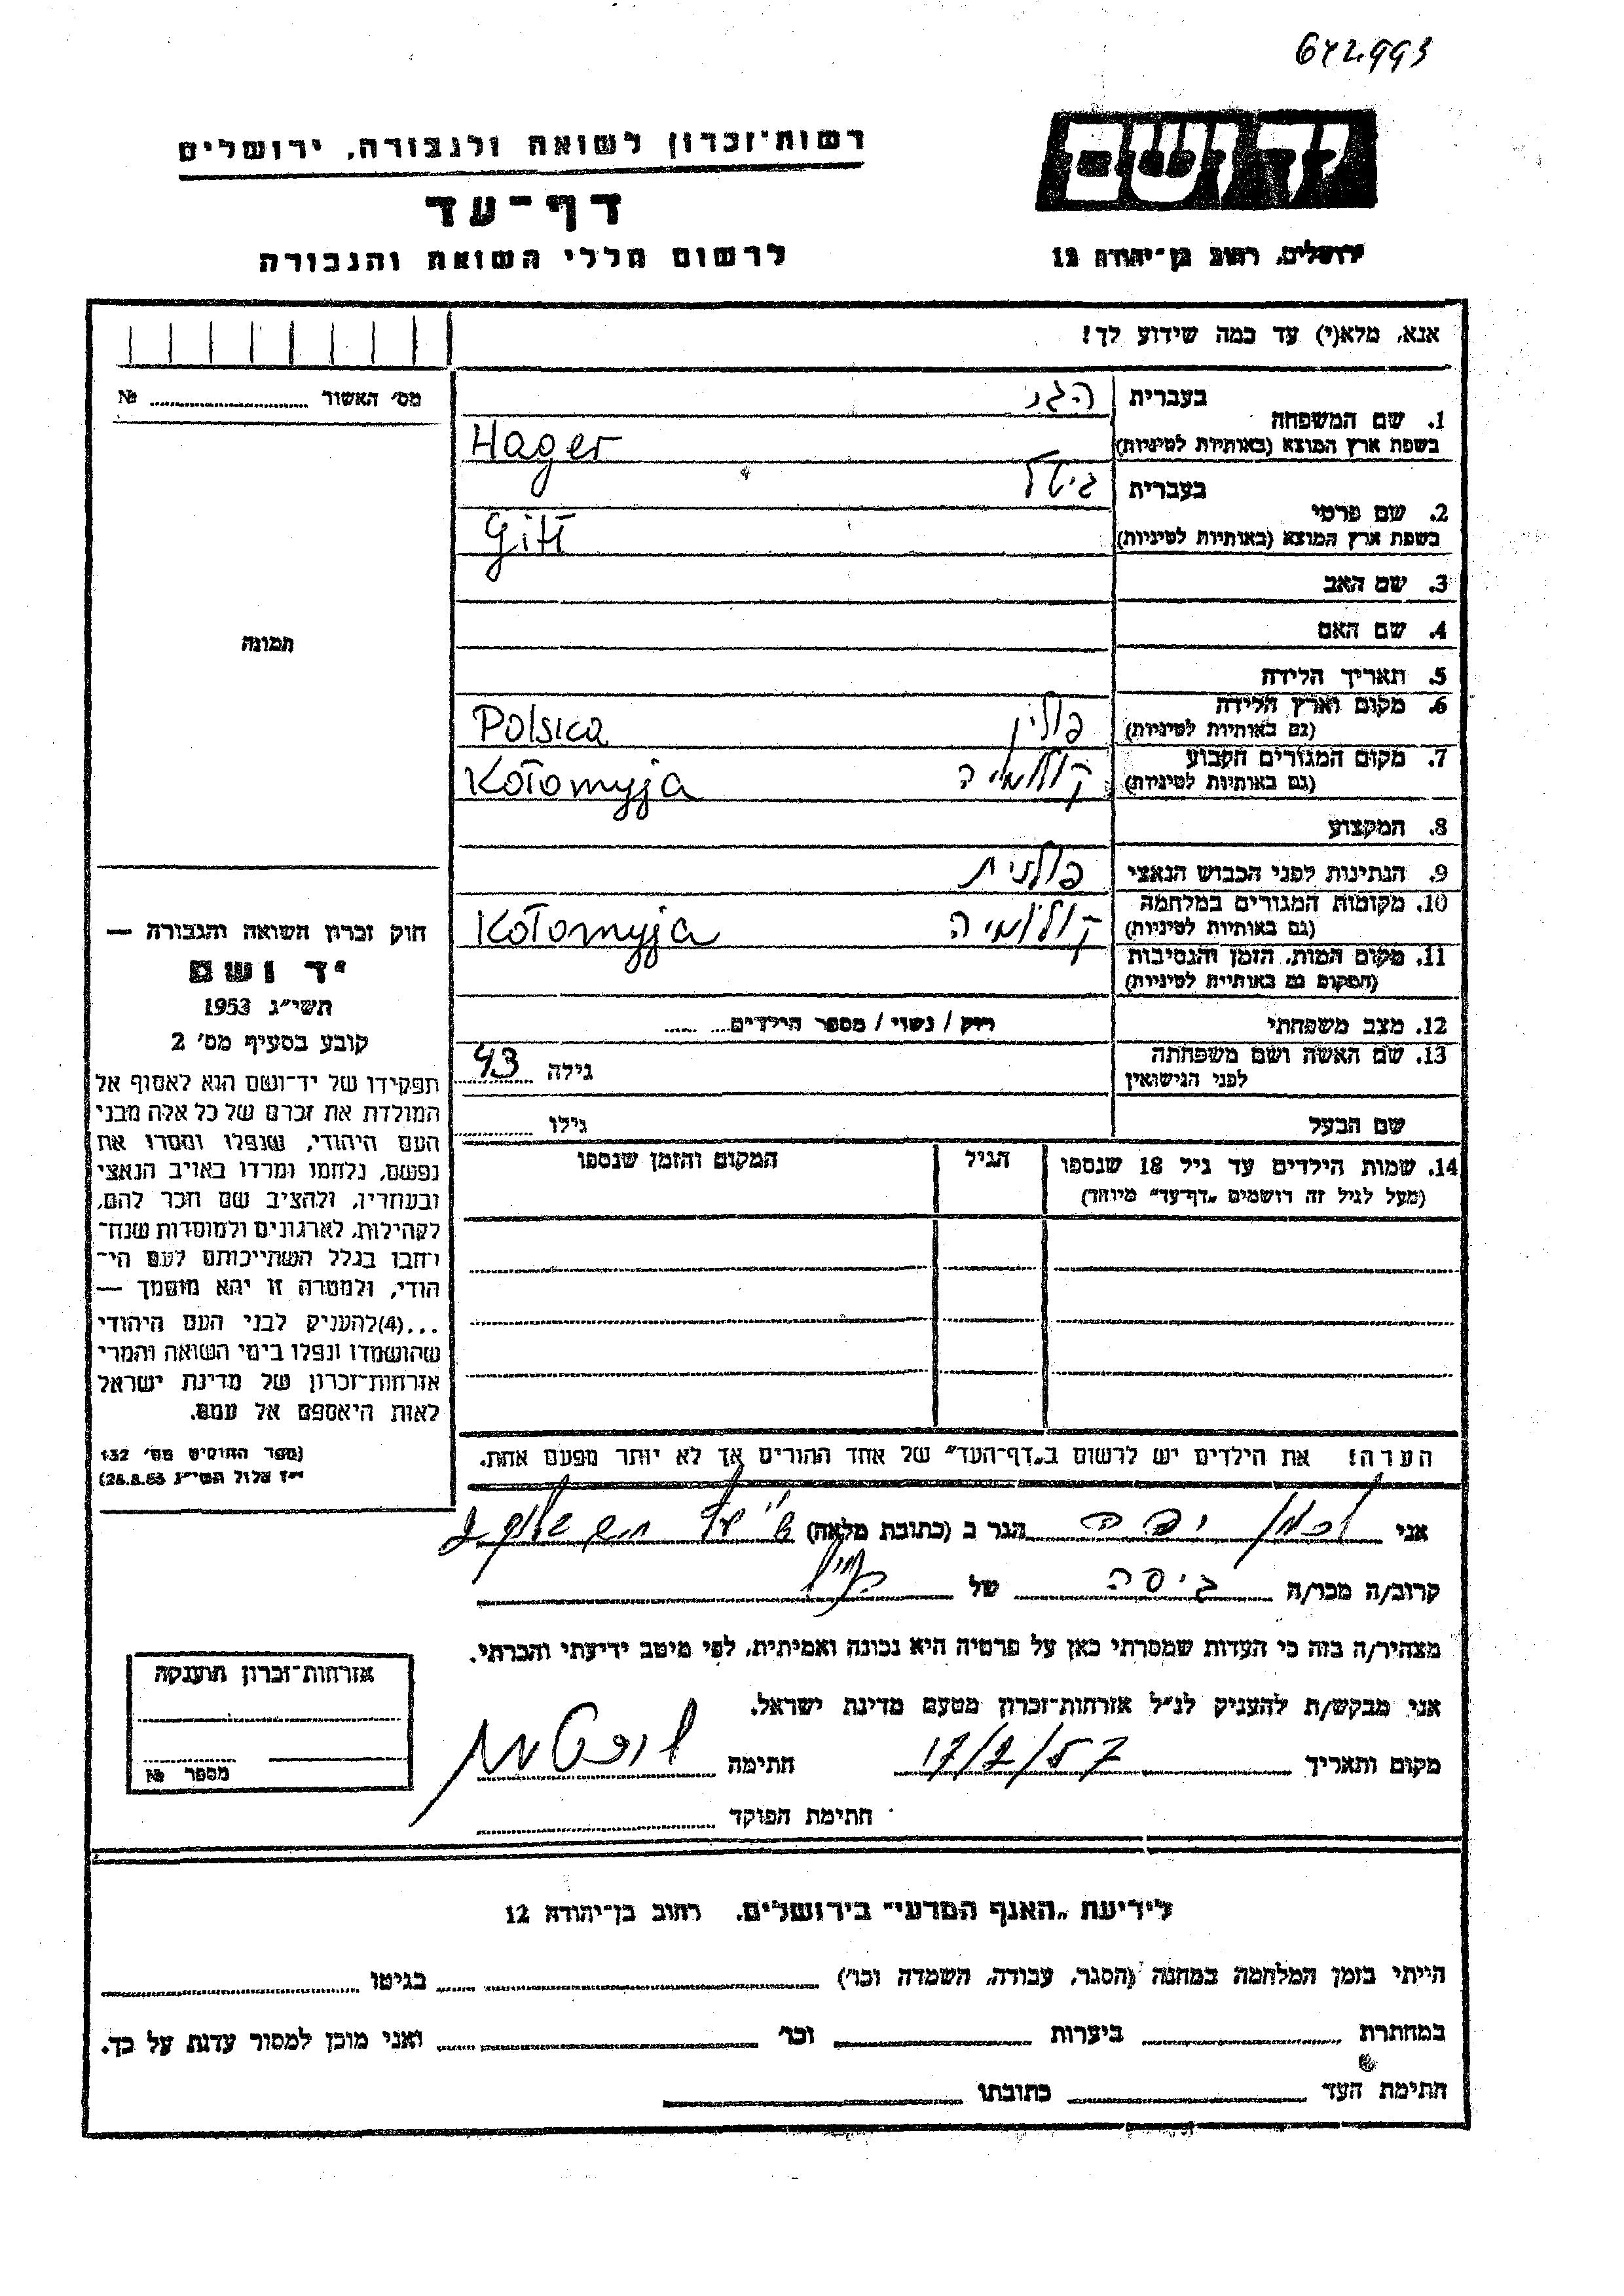 672993
יד ושם
רשות־זכרון לשואה ולגבורה, ירושלים
דף־עד
לרשום חללי השואה והגבורה
ירושלים, רחוב בן־יהודה 12
אנא, מלא(י) עד כמה שידוע לך!
מס׳ האשור ........ №
תמונה
1. שם המשפחה
בעברית הגר
בשפת ארץ המוצא (באותיות לטיניות) Hager
2. שם פרטי
בעברית גיטל
בשפת ארץ המוצא (באותיות לטיניות) Gitl
3. שם האב
4. שם האם
5. תאריך הלידה
6. מקום וארץ הלידה
(גם באותיות לטיניות) פולין Polska
7. מקום המגורים הקבוע
(גם באותיות לטיניות) קולומיה Kołomyja
8. המקצוע
9. הנתינות לפני הכבוש הנאצי פולנית
10. מקומות המגורים במלחמה
(גם באותיות לטיניות) קולומיה Kołomyja
11. מקום המות, הזמן והנסיבות
(המקום גם באותיות לטיניות)
12. מצב משפחתי רווק / נשוי / מספר הילדים........
13. שם האשה ושם משפחתה
לפני הנישואין גילה 43
שם הבעל גילו ........
14. שמות הילדים עד גיל 18 שנספו הגיל המקום והזמן שנספו
(מעל לגיל זה רושמים „דף־עד״ מיוחד)
הערה: את הילדים יש לרשום ב„דף־העד״ של אחד ההורים אך לא יותר מפעם אחת.
חוק זכרון השואה והגבורה —
יד ושם
תשי״ג 1953
קובע בסעיף מס׳ 2
תפקידו של יד־ושם הוא לאסוף אל
המולדת את זכרם של כל אלה מבני
העם היהודי, שנפלו ומסרו את
נפשם, נלחמו ומרדו באויב הנאצי
ובעוזריו, ולהציב שם וזכר להם,
לקהילות, לארגונים ולמוסדות שנח־
רובו בגלל השתייכותם לעם הי־
הודי, ולמטרה זו יהא מוסמך —
...(4)להעניק לבני העם היהודי
שהושמדו ונפלו בימי השואה והמרי
אזרחות־זכרון של מדינת ישראל
לאות היאספם אל עמם.
(ספר החוקים מס׳ 132
י״ז אלול תשי״ג 28.8.53)
אני הגר ב (כתובת מלאה)
קרוב/ה מכר/ה גיסה של
מצהיר/ה בזה כי העדות שמסרתי כאן על פרטיה היא נכונה ואמיתית, לפי מיטב ידיעתי והכרתי.
אני מבקש/ת להעניק לנ״ל אזרחות־זכרון מטעם מדינת ישראל.
מקום ותאריך 17/2/57 חתימה
חתימת הפוקד
אזרחות־זכרון הוענקה
מספר №
לידיעת „האגף המדעי״ בירושלים, רחוב בן־יהודה 12
הייתי בזמן המלחמה במחנה (הסגר, עבודה, השמדה וכו׳) ........ בגיטו ........
במחתרת ........ ביערות ........ וכו׳ ........ ואני מוכן למסור עדות על כך.
חתימת העד ........ כתובתו ........